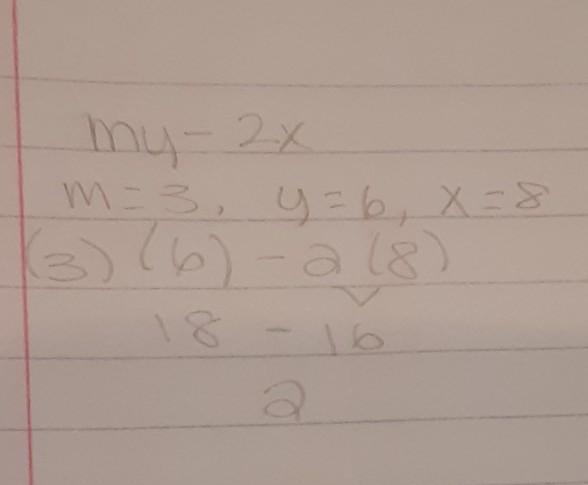 my - 2x
m = 3, y = 6, x = 8
(3) (6) - 2 (8)
18 - 16
2